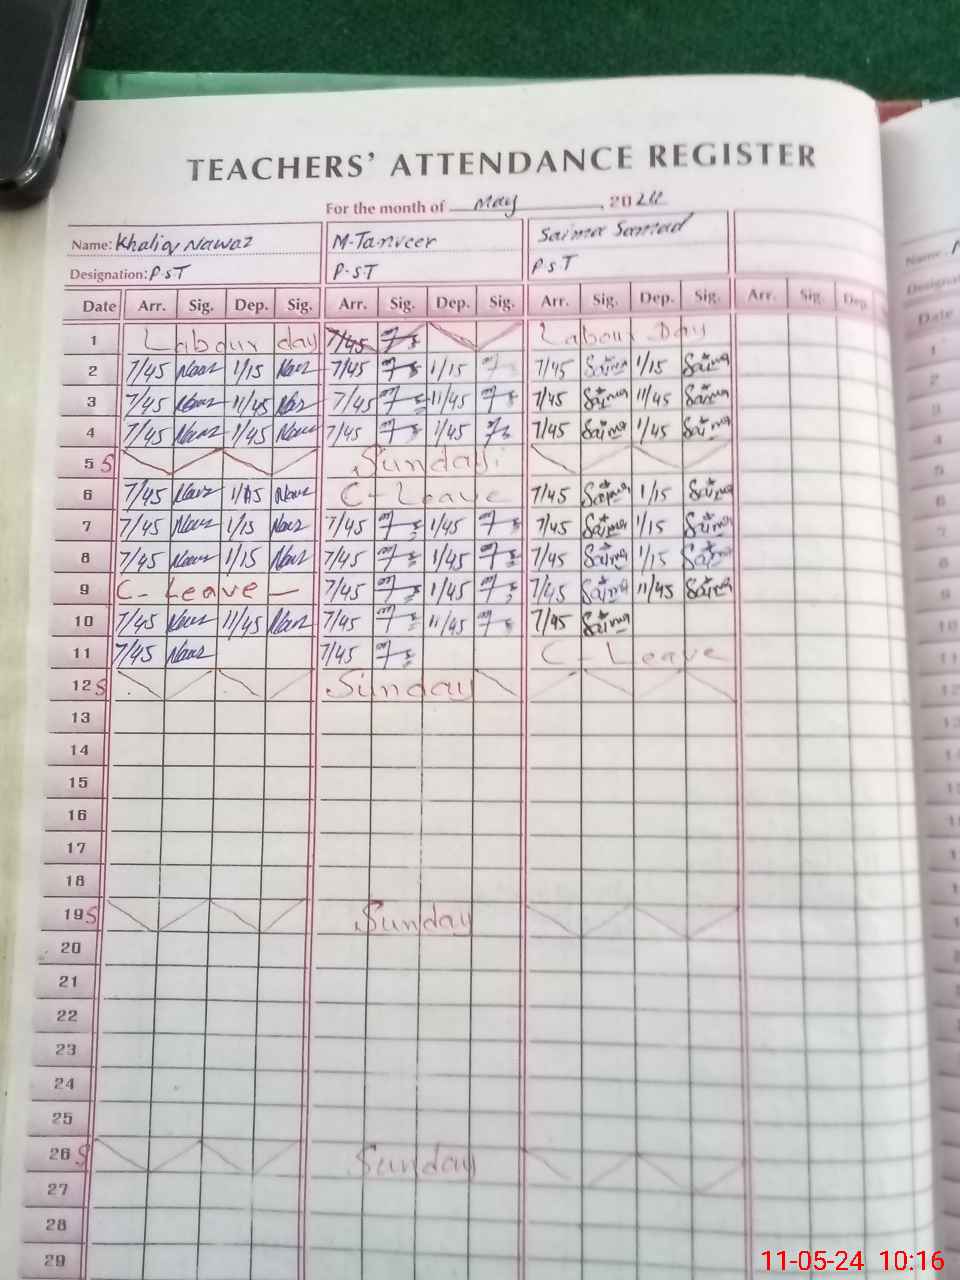 TEACHERS' ATTENDANCE REGISTER
For the month of May, 2024
Name: Khaliq Nawaz M-Tanveer Saima Samad
Designation: PST P-ST PST
Date Arr. Sig. Dep. Sig. Arr. Sig. Dep. Sig. Arr. Sig. Dep. Sig. Arr. Sig. Dep.
1 Labour day 7/45 Labour Day
2 7/45 Nawz 1/15 Nawz 7/45 1/15 7/45 Saima 1/15 Saima
3 7/45 Nawz 11/45 Nawz 7/45 11/45 7/45 Saima 11/45 Saima
4 7/45 Nawz 1/45 Nawz 7/45 1/45 7/45 Saima 1/45 Saima
5 S Sunday
6 7/45 Nawz 1/15 Nawz C-Leave 7/45 Saima 1/15 Saima
7 7/45 Nawz 1/15 Nawz 7/45 1/45 7/45 Saima 1/15 Saima
8 7/45 Nawz 1/15 Nawz 7/45 1/45 7/45 Saima 1/15 Saima
9 C-Leave - 7/45 1/45 7/45 Saima 11/45 Saima
10 7/45 Nawz 11/45 Nawz 7/45 11/45 7/45 Saima
11 7/45 Nawz 7/45 C-Leave
12 S Sunday
13
14
15
16
17
18
19 S Sunday
20
21
22
23
24
25
26 S Sunday
27
28
29
11-05-24 10:16